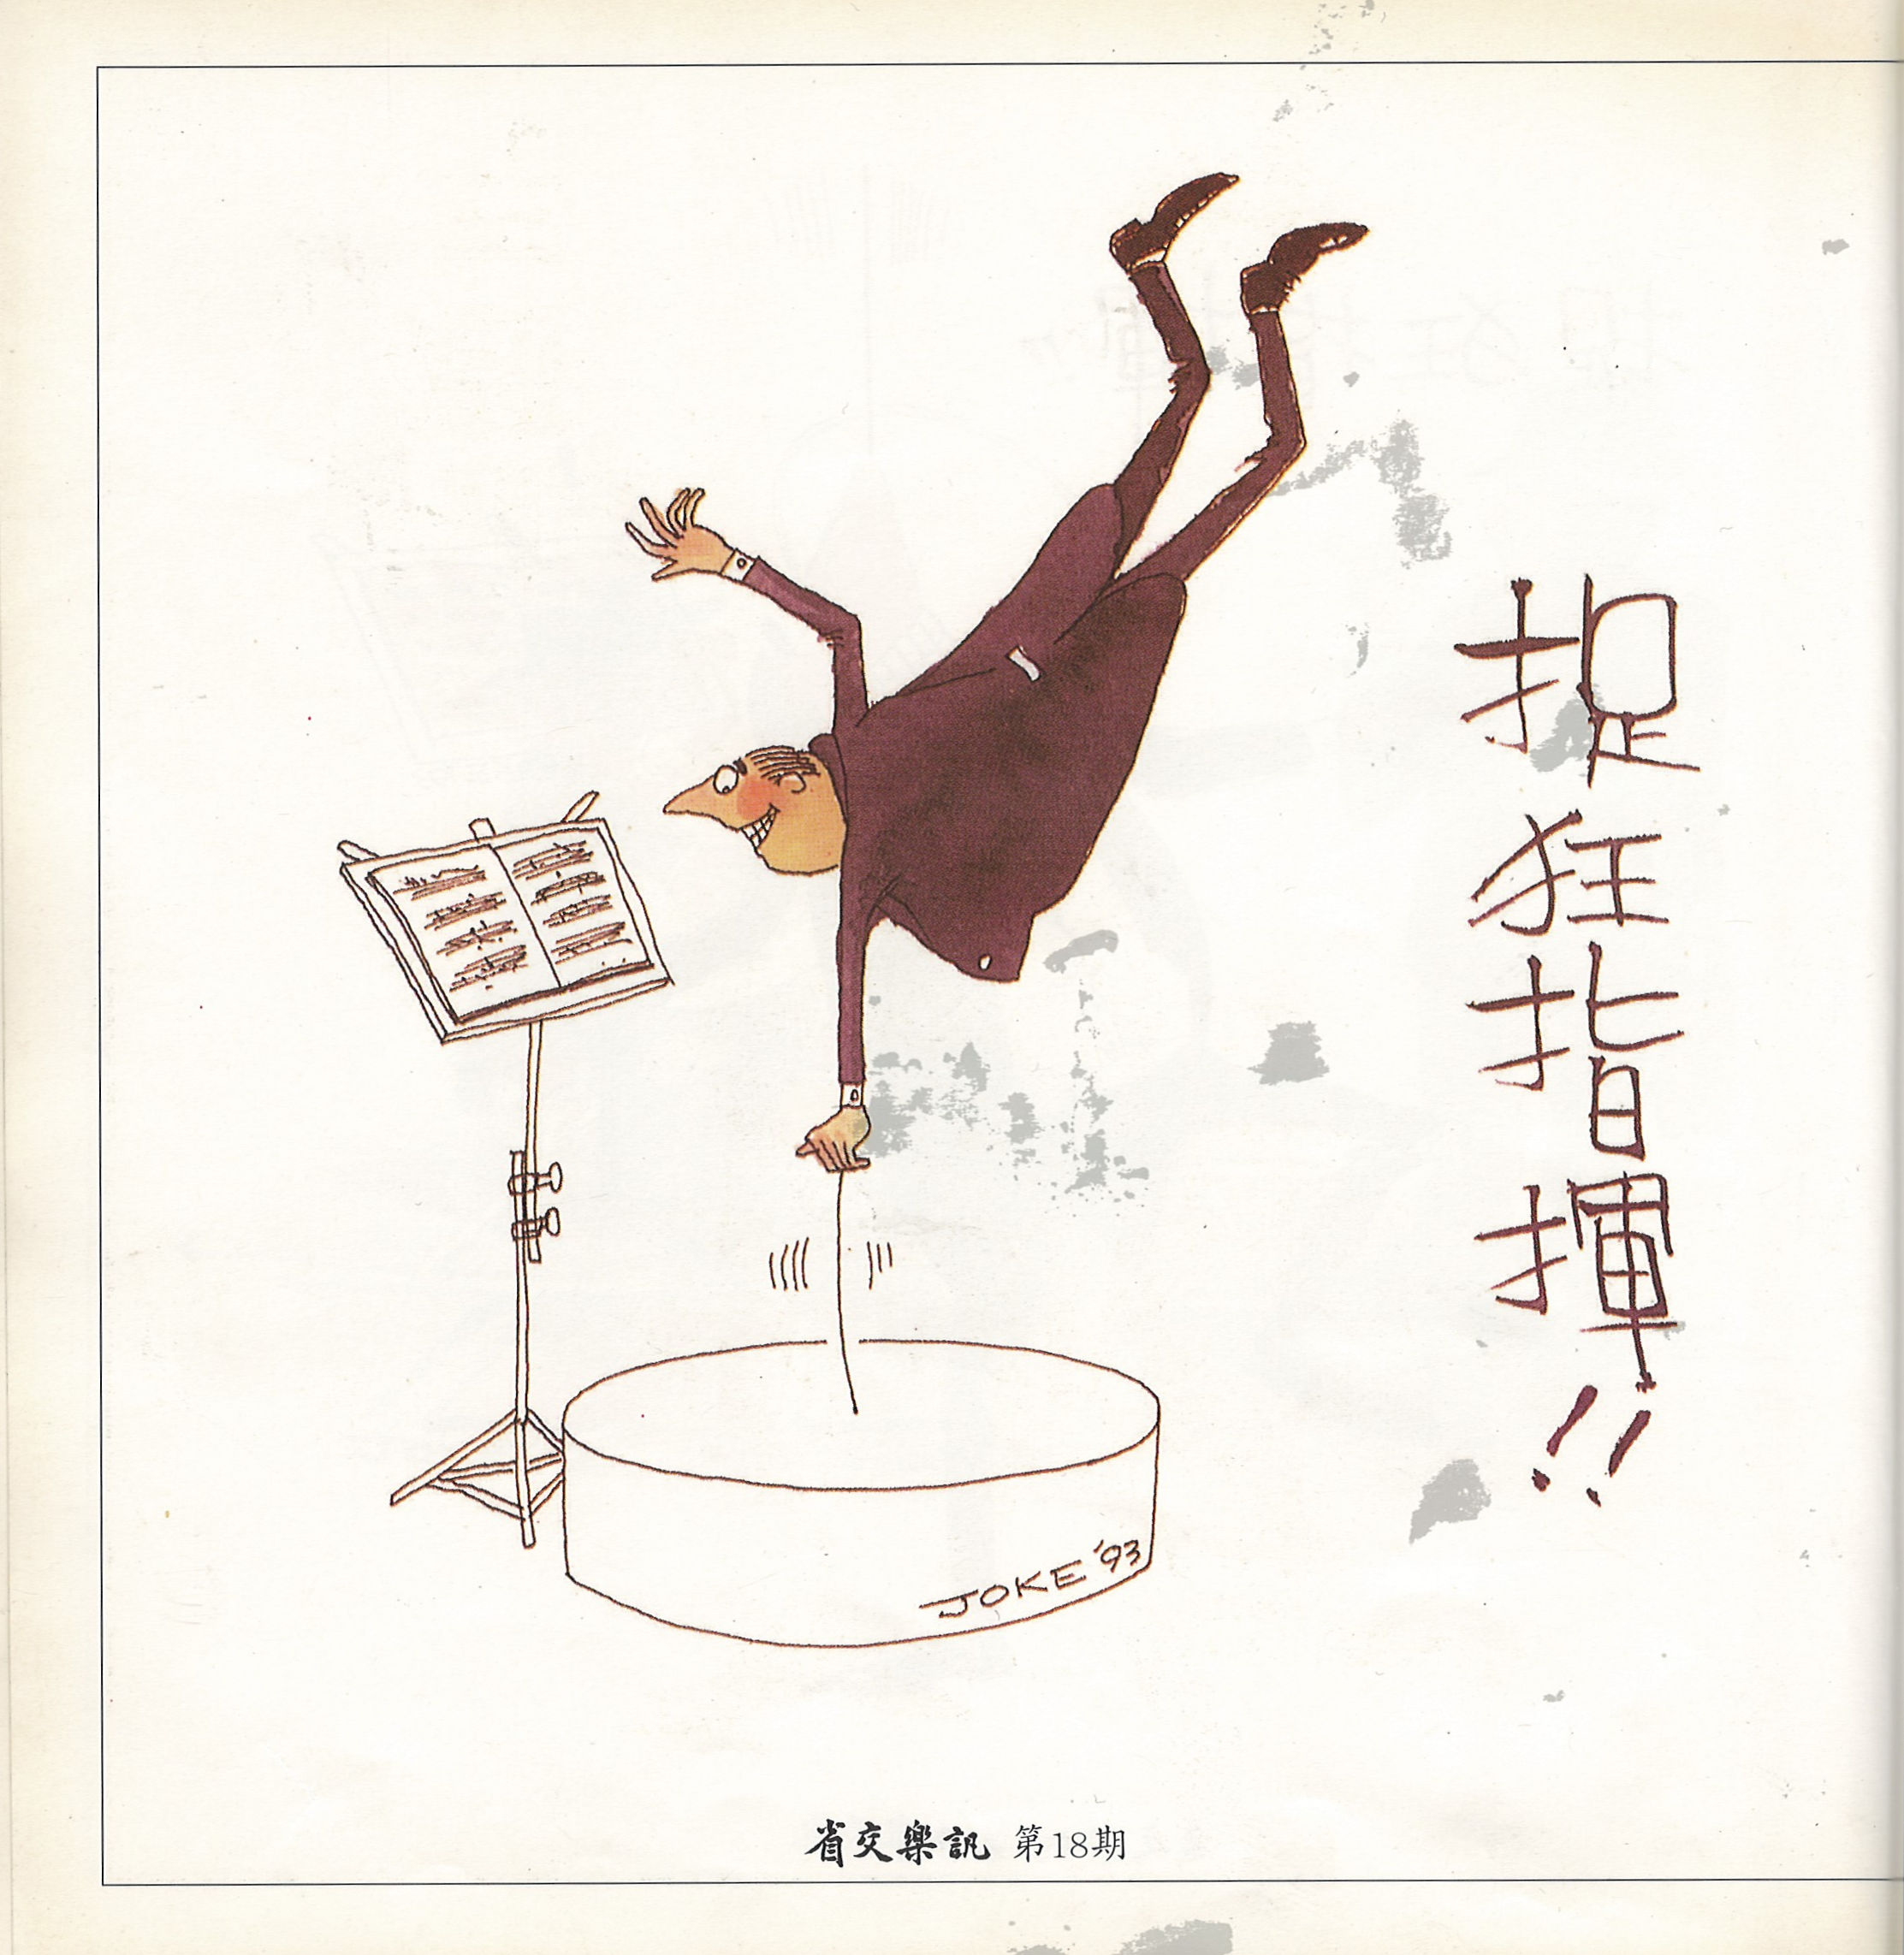 捉狂指揮!!
JOKE '93
省交樂訊 第18期